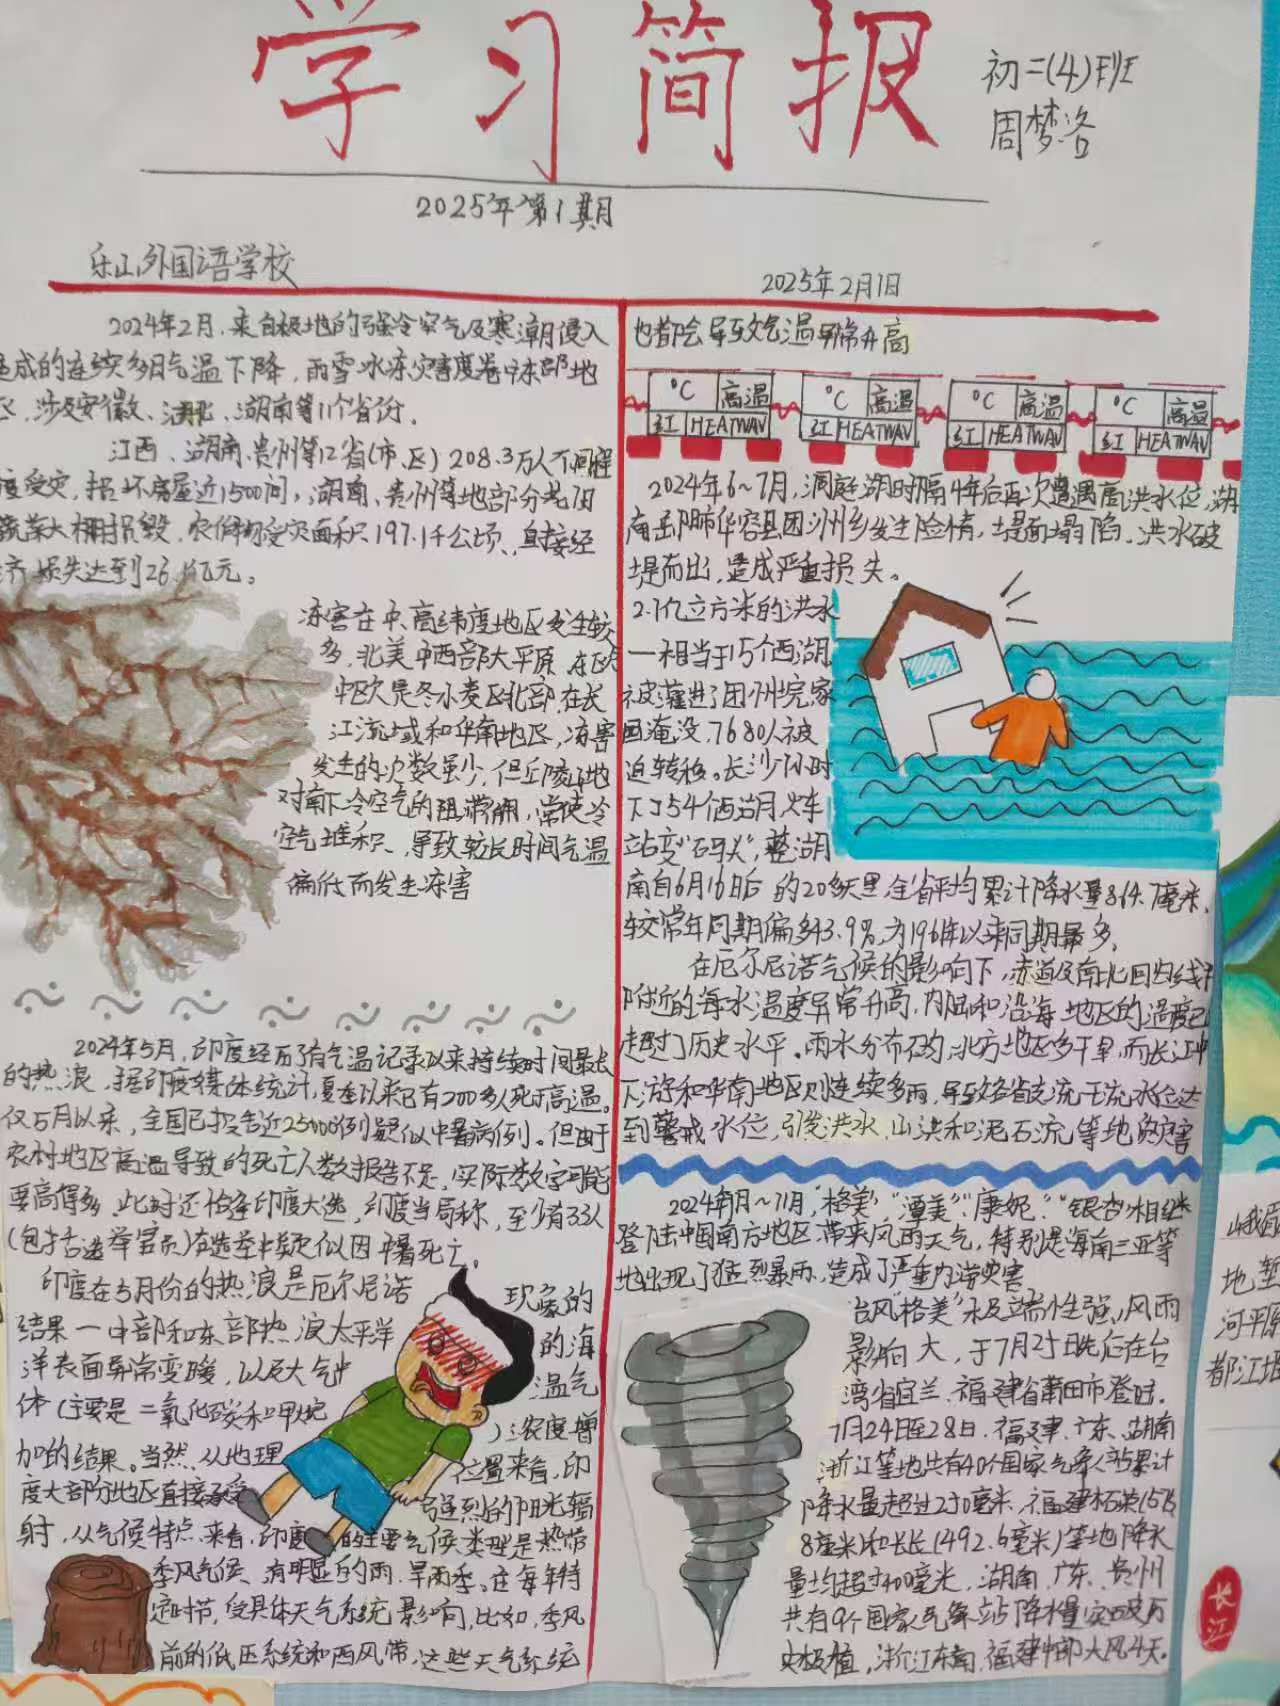 学习简报
初二(4)班
周梦洛
2025年第1期
乐山外国语学校
2025年2月1日
2024年2月,来自极地的强冷空气及寒潮侵入
造成的连续多日气温下降,雨雪冰冻灾害席卷中东部地
区,涉及安徽、湖北、湖南等11个省份。
江西、湖南、贵州等12省(市、区)208.3万人不同程
度受灾,损坏房屋近1500间,湖南、贵州等地部分
蔬菜大棚损毁,农作物受灾面积197.1千公顷,直接经
济损失达到26.1亿元。
冻害在中、高纬度地区发生较
多,北美中西部大平原、东欧
中欧是冬小麦区北部,在长
江流域和华南地区,冻害
发生的次数虽少,但丘陵山地
对南下冷空气的阻滞作用,常使冷
空气堆积,导致较长时间气温
偏低而发生冻害
2024年5月,印度经历了有气温记录以来持续时间最长
的热浪,据印度媒体统计,夏季以来已有200多人死于高温。
仅5月以来,全国已报告近25000例疑似中暑病例。但由于
农村地区高温导致的死亡人数报告不足,实际数字可能
要高得多,此时还恰逢印度大选,印度当局称,至少有33人
(包括选举官员)在选举中疑似因中暑死亡。
印度在5月份的热浪是厄尔尼诺 现象的
结果一中部和东部热浪太平洋 的海
洋表面异常变暖,以及大气中 温气
体(主要是二氧化碳和甲烷 )浓度增
加的结果。当然,从地理 位置来看,印
度大部分地区直接承受 强烈的阳光辐
射,从气候特点来看,印度的主要气候类型是热带
季风气候,有明显的雨、旱两季。在每年特
定时节,受具体天气系统影响,比如,季风
前的低压系统和西风带,这些天气系统
也都会导致气温异常升高
°C 高温 °C 高温 °C 高温 °C 高温
红 HEATWAV 红 HEATWAV 红 HEATWAV 红 HEATWAV
2024年6~7月,洞庭湖时隔4年后再次遭遇高洪水位,湖
南岳阳市华容县团洲乡发生险情,堤面塌陷,洪水破
堤而出,造成严重损失。
2.1亿立方米的洪水
一相当于15个西湖
被灌进了团州垸,家
园淹没,7680人被
迫转移。长沙1小时
下了54个西湖,火车
站变“码头”,整湖
南自6月16日后的20多天里全省平均累计降水量364.7毫米,
较常年同期偏多43.9%,为1961年以来同期最多,
在厄尔尼诺气候的影响下,赤道及南北回归线
附近的海水温度异常升高,内陆和沿海地区的温度已
超过了历史水平。雨水分布不均,北方地区多干旱,而长江中
下游和华南地区则连续多雨,导致各省支流干流水位达
到警戒水位,引发洪水、山洪和泥石流等地质灾害
2024年7月~11月,“格美”,“潭美”“康妮”“银杏”相继
登陆中国南方地区,带来风雨天气,特别是海南三亚等
地出现了猛烈暴雨,造成了严重内涝灾害
台风“格美”水及端性强,风雨
影响大,于7月25日先后在台
湾省宜兰、福建省莆田市登陆。
7月24日至28日,福建、广东、湖南
浙江等地共有40个国家气象站累计
降水量超过250毫米,福建柘荣(515.
8毫米)和长长(492.6毫米)等地降水
量均超过400毫米,湖南、广东、贵州
共有9个国家气象站降水量突破历
史极值,浙江东南、福建中部大风4天。
峨眉
地堑
河平原
都江堰
长江